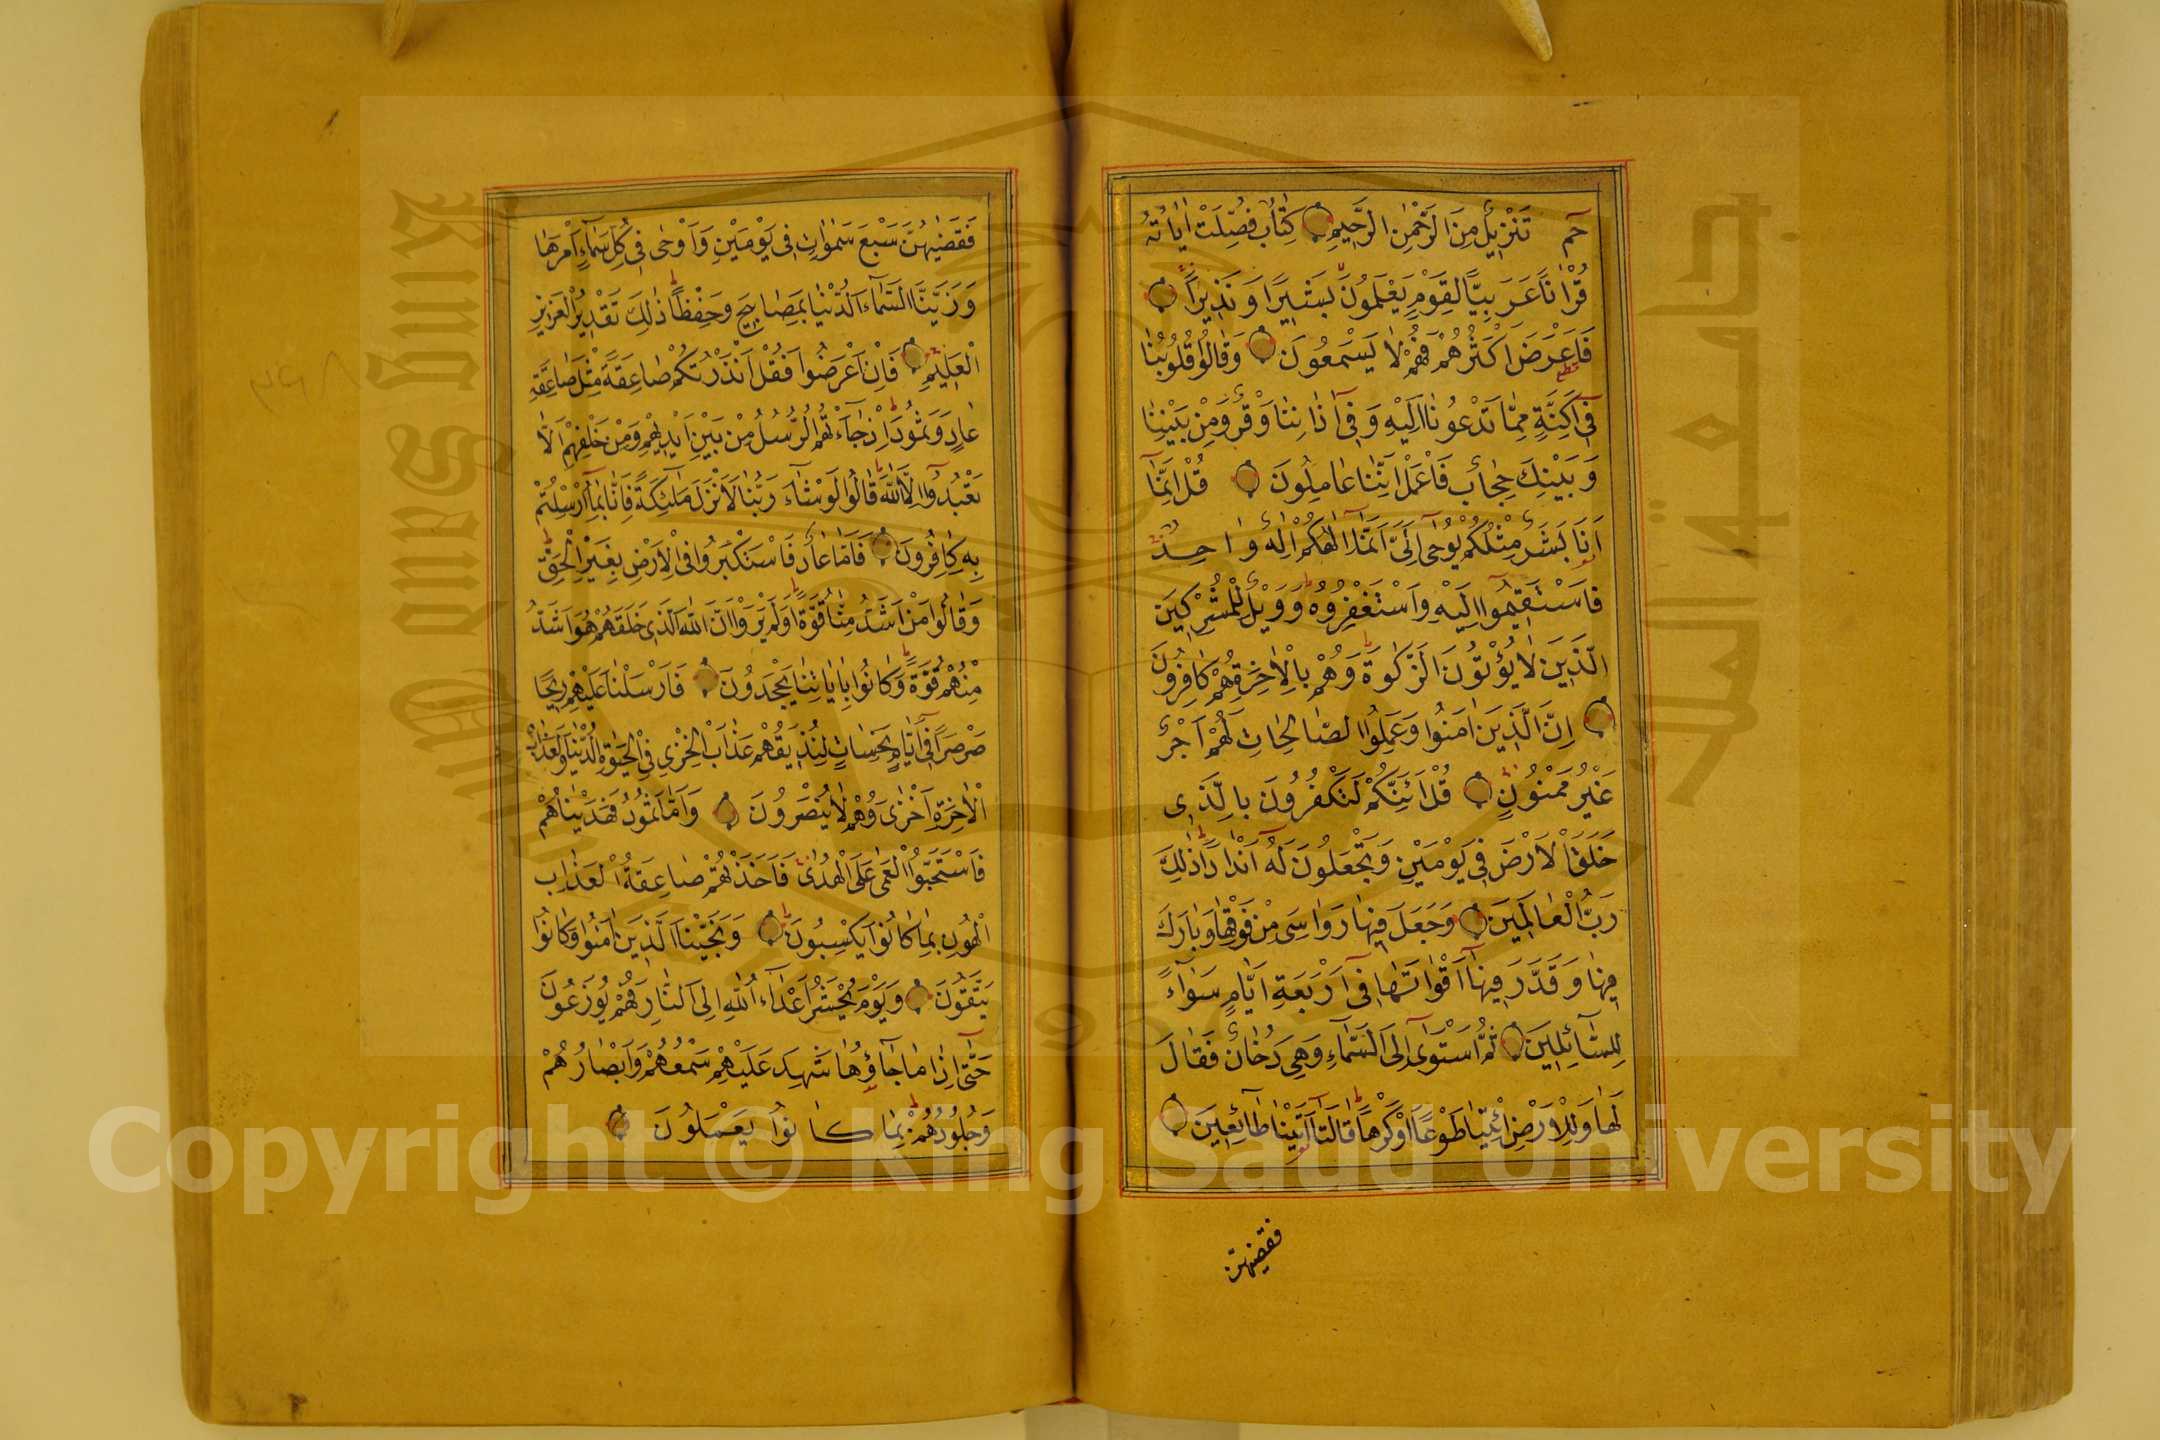 حم تَنْزِيلٌ مِنَ الرَّحْمٰنِ الرَّحِيمِ كِتَابٌ فُصِّلَتْ اٰيَاتُهُ
قُرْاٰنًا عَرَبِيًّا لِقَوْمٍ يَعْلَمُونَ بَشِيرًا وَنَذِيرًا
فَاَعْرَضَ اَكْثَرُهُمْ فَهُمْ لَا يَسْمَعُونَ وَقَالُوا قُلُوبُنَا
فِى اَكِنَّةٍ مِمَّا تَدْعُونَا اِلَيْهِ وَفِى اٰذَانِنَا وَقْرٌ وَمِنْ بَيْنِنَا
وَبَيْنِكَ حِجَابٌ فَاعْمَلْ اِنَّنَا عَامِلُونَ قُلْ اِنَّمَا
اَنَا بَشَرٌ مِثْلُكُمْ يُوحٰى اِلَىَّ اَنَّمَا اِلٰهُكُمْ اِلٰهٌ وَاحِدٌ
فَاسْتَقِيمُوا اِلَيْهِ وَاسْتَغْفِرُوهُ وَوَيْلٌ لِلْمُشْرِكِينَ
الَّذِينَ لَا يُؤْتُونَ الزَّكٰوةَ وَهُمْ بِالْاٰخِرَةِ هُمْ كَافِرُونَ
اِنَّ الَّذِينَ اٰمَنُوا وَعَمِلُوا الصَّالِحَاتِ لَهُمْ اَجْرٌ
غَيْرُ مَمْنُونٍ قُلْ اَئِنَّكُمْ لَتَكْفُرُونَ بِالَّذِى
خَلَقَ الْاَرْضَ فِى يَوْمَيْنِ وَتَجْعَلُونَ لَهُ اَنْدَادًا ذٰلِكَ
رَبُّ الْعَالَمِينَ وَجَعَلَ فِيهَا رَوَاسِىَ مِنْ فَوْقِهَا وَبَارَكَ
فِيهَا وَقَدَّرَ فِيهَا اَقْوَاتَهَا فِى اَرْبَعَةِ اَيَّامٍ سَوَاءً
لِلسَّائِلِينَ ثُمَّ اسْتَوٰى اِلَى السَّمَاءِ وَهِىَ دُخَانٌ فَقَالَ
لَهَا وَلِلْاَرْضِ ائْتِيَا طَوْعًا اَوْ كَرْهًا قَالَتَا اَتَيْنَا طَائِعِينَ
فقضيهن
فَقَضٰيهُنَّ سَبْعَ سَمٰوَاتٍ فِى يَوْمَيْنِ وَاَوْحٰى فِى كُلِّ سَمَاءٍ اَمْرَهَا
وَزَيَّنَّا السَّمَاءَ الدُّنْيَا بِمَصَابِيحَ وَحِفْظًا ذٰلِكَ تَقْدِيرُ الْعَزِيزِ
الْعَلِيمِ فَاِنْ اَعْرَضُوا فَقُلْ اَنْذَرْتُكُمْ صَاعِقَةً مِثْلَ صَاعِقَةِ
عَادٍ وَثَمُودَ اِذْ جَاءَتْهُمُ الرُّسُلُ مِنْ بَيْنِ اَيْدِيهِمْ وَمِنْ خَلْفِهِمْ اَلَّا
تَعْبُدُوا اِلَّا اللّٰهَ قَالُوا لَوْ شَاءَ رَبُّنَا لَاَنْزَلَ مَلٰئِكَةً فَاِنَّا بِمَا اُرْسِلْتُمْ
بِهِ كَافِرُونَ فَاَمَّا عَادٌ فَاسْتَكْبَرُوا فِى الْاَرْضِ بِغَيْرِ الْحَقِّ
وَقَالُوا مَنْ اَشَدُّ مِنَّا قُوَّةً اَوَلَمْ يَرَوْا اَنَّ اللّٰهَ الَّذِى خَلَقَهُمْ هُوَ اَشَدُّ
مِنْهُمْ قُوَّةً وَكَانُوا بِاٰيَاتِنَا يَجْحَدُونَ فَاَرْسَلْنَا عَلَيْهِمْ رِيحًا
صَرْصَرًا فِى اَيَّامٍ نَحِسَاتٍ لِنُذِيقَهُمْ عَذَابَ الْخِزْىِ فِى الْحَيٰوةِ الدُّنْيَا وَلَعَذَابُ
الْاٰخِرَةِ اَخْزٰى وَهُمْ لَا يُنْصَرُونَ وَاَمَّا ثَمُودُ فَهَدَيْنَاهُمْ
فَاسْتَحَبُّوا الْعَمٰى عَلَى الْهُدٰى فَاَخَذَتْهُمْ صَاعِقَةُ الْعَذَابِ
الْهُونِ بِمَا كَانُوا يَكْسِبُونَ وَنَجَّيْنَا الَّذِينَ اٰمَنُوا وَكَانُوا
يَتَّقُونَ وَيَوْمَ يُحْشَرُ اَعْدَاءُ اللّٰهِ اِلَى النَّارِ فَهُمْ يُوزَعُونَ
حَتّٰى اِذَا مَا جَاؤُهَا شَهِدَ عَلَيْهِمْ سَمْعُهُمْ وَاَبْصَارُهُمْ
وَجُلُودُهُمْ بِمَا كَانُوا يَعْمَلُونَ
Copyright © King Saud University
King Saud University
جامعة الملك
1957